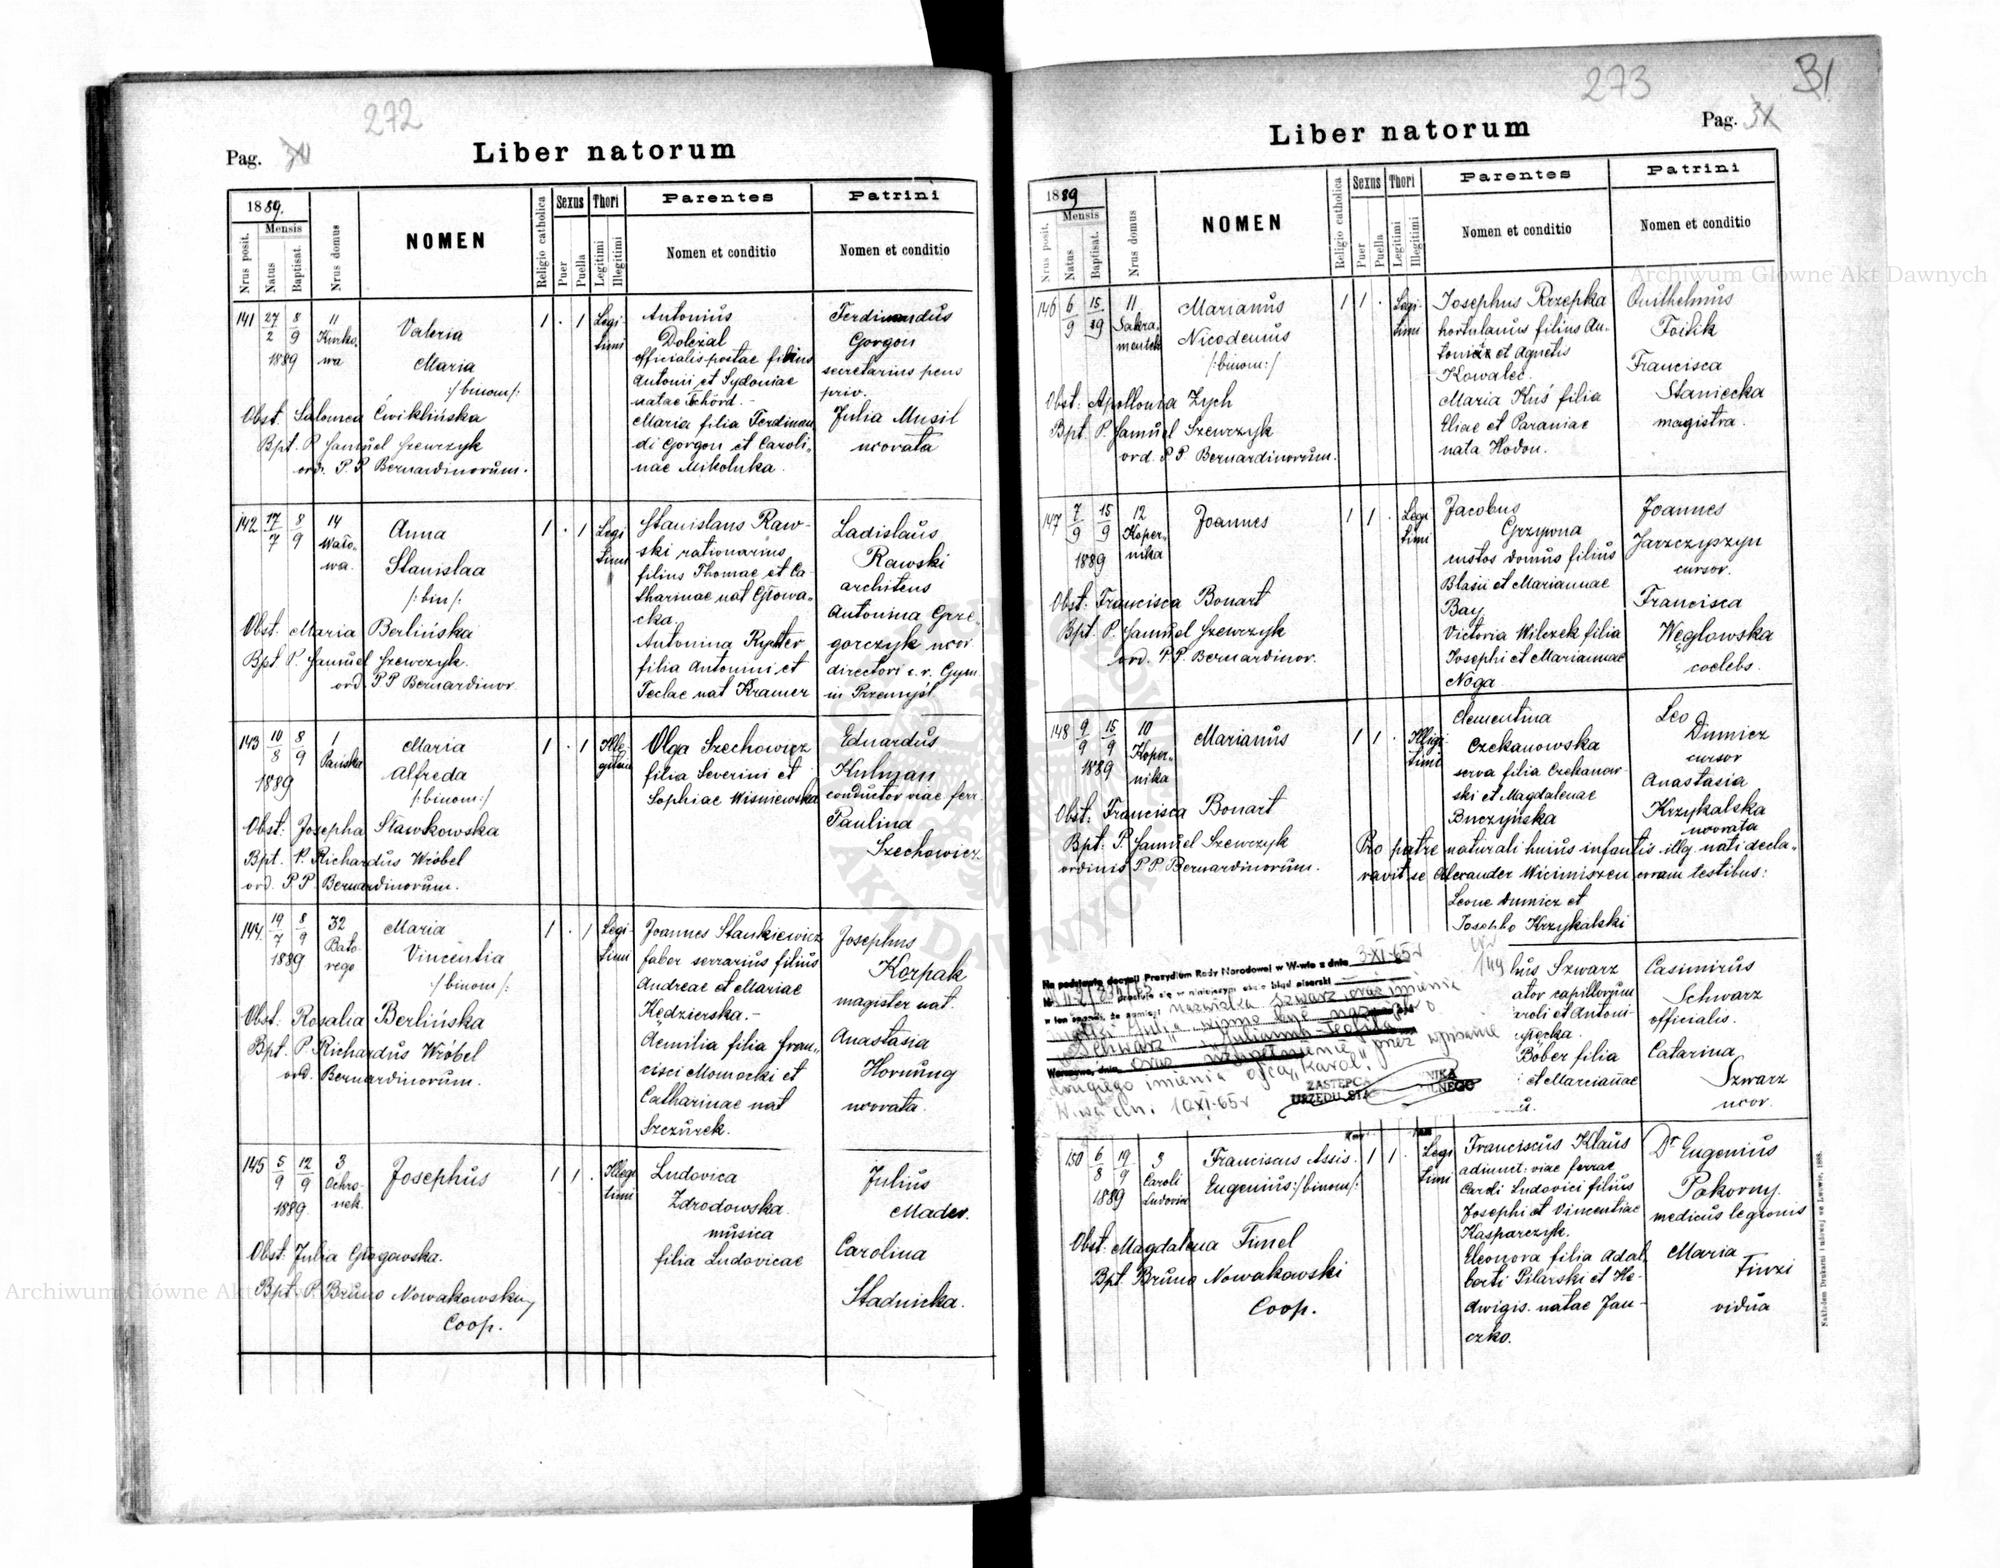 272
Pag.
Liber natorum
1889.
Mensis
Nrus posit.
Natus
Baptisat.
Nrus domus
NOMEN
Religio catholica
Sexus
Puer
Puella
Thori
Legitimi
Illegitimi
Parentes
Nomen et conditio
Patrini
Nomen et conditio
141 27/2 8/9 1889 11
Valeria
Maria
/:binom/:
Obst. Salomea Ćwiklińska
Bpt. P. Samuel Szewczyk
ord. P P Bernardinorum.
1 . 1 Legi
timi
Antonius
Doležal
officialis postae filius
Antonii et Sydoniae
natae
Maria filia Ferdinan
di Gorgon et Caroli-
nae Mikolnka.
Ferdinandus
Gorgon
secretarius pens
priv.
Julia Musil
uxorata
142 17/7 8/9 14
Wało-
wa.
Anna
Stanislaa
/:bin/:
Obst. Maria Berlińska
Bpt. P. Samuel Szewczyk.
ord. P P Bernardinor.
1 . 1 Legi
timi
Stanislaus Raw-
ski rationarius
filius Thomae et Ca
tharinae nat Głowa-
cka.
Antonina Rychter
filia Antonini et
Teclae nat Kramer
Ladislaus
Rawski
architens
Antonina Grze-
gorczyk uxor
directori c. r. Gym
in Przemyśl.
143 10/8 8/9 1889 1
Pańska
Maria
Alfreda
/:binom:/
Obst: Josepha Sławkowska
Bpt. P. Richardus Wróbel
ord. P P. Bernardinorum.
1 . 1 Ille-
gitimi
Olga Szechowicz
filia Severini et
Sophiae Wisniewska
Eduardus
Hulman
conductor viae ferr.
Paulina
Szechowicz
144. 19/7 8/9 1889 32
Bato-
rego
Maria
Vincentia
/:binom/:
Obst: Rosalia Berlińska
Bpt. P. Richardus Wróbel
ord. Bernardinorum.
1 . 1 Legi-
timi
Joannes Stankiewicz
faber serrarius filius
Andreae et Mariae
Kędzierska.-
Aemilia filia Fran-
cisci Momocki et
Catharinae nat
Szczurek.
Josephus
Korpak
magister nat.
Anastasia
Hornung
uxorata.
145 5/9 12/9 1889. 3
Ochro-
nek.
Josephus
Obst: Julia Głogowska.
Bpt. P. Bruno Nowakowsky
Coop.
1 1 . Illegi
timi
Ludovica
Zdrodowska.
musica
filia Ludovicae
Julius
Mader.
Carolina
Stadnicka.
273
31
Pag.
Liber natorum
1889
Mensis
Nrus posit.
Natus
Baptisat.
Nrus domus
NOMEN
Religio catholica
Sexus
Puer
Puella
Thori
Legitimi
Illegitimi
Parentes
Nomen et conditio
Patrini
Nomen et conditio
146 6/9 15/89 11
Sakra-
mentek
Marianus
Nicodemus
/:binom:/
Obst: Apollonia Zych
Bpt. P. Samuel Szewczyk
ord. P P Bernardinorum.
1 1 . Legi-
timi
Josephus Rzepka
hortulanus filius An-
tonii et Agnetis
Kowalec.
Maria Kuś filia
Eliae et Paraniae
nata Hodon.
Quilhelmus
Foitik
Francisca
Staniecka
magistra.
147 7/9 15/9 1889 12
Koper-
nika
Joannes
Obst: Francisca Bonart
Bpt. P. Samuel Szewczyk
ord. P P. Bernardinor.
1 1 . Legi
timi
Jacobus
Grzywna
custos domus filius
Blasii et Mariannae
Bay
Victoria Wilczek filia
Josephi et Mariannae
Noga.
Joannes
Jarzczyszyn
cursor.
Francisca
Węglowska
coelebs.
148 9/9 15/9 1889 10
Koper-
nika
Marianus
Obst: Francisca Bonart
Bpt: P. Samuel Szewczyk
ordinis P P. Bernardinorum.
1 1 . Illigi
timi
Clementina
Czekanowska
serva filia Czekanow-
ski et Magdalenae
Buczyńska
Leo
Dumicz
cursor
Anastasia
Krzykalska
uxorata
Pro patre naturali huius infantis illg. nati decla-
ravit se Alexander Wicimiszen coram testibus:
Leone Dumicz et
Josepho Krzykalski
Na podstawie decyzji Prezydium Rady Narodowej w W-wie z dnia 3-XI-65r
prostuje się w niniejszym akcie błąd pisarski
w ten sposób, że zamiast nazwiska Szwarz oraz imienia
Julia winno być nazwisko
"Schwarz"
oraz uzupełnienie przez wpisanie
drugiego imienia ojca "Karol".
W-wa dn: 10XI-65r
ZASTĘPCA
URZĘDU STA
NIKA
ILNEGO
nr
149
hus Szwarz
ator capillorum
aroli et Antoni-
Bober filia
et Marcianae
Casimirus
Schwarz
officialis.
Catarina
Szwarz
uxor.
150 6/8 19/9 1889 3
Caroli
Ludovici
Franciscus Assis.
Eugenius:/binom/:
Obst: Magdalena Timel
Bpt. Bruno Nowakowski
Coop.
1 1 . Legi
timi
Franciscus Klaus
adiunct: viae ferrae
Caroli Ludovici filius
Josephi et Vincentiae
Kasparczyk.
Eleonora filia Adal
berti Pilarski et He-
dwigis. natae Jan-
czko.
Dr Eugenius
Pokorny.
medicus legionis
Maria
Finzi
vidua
Nakładem Drukarni Ludowej we Lwowie. 1888.
Archiwum Główne Akt Dawnych
Archiwum Główne Akt Dawnych